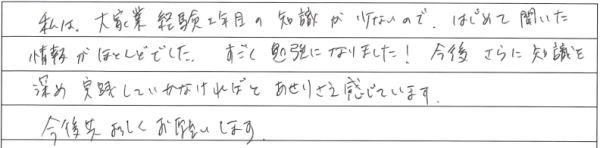 私は、大家業経験2年目の知識が少ないので、はじめて聞いた
情報がほとんどでした。すごく勉強になりました！今後さらに知識を
深め実践していかなければとあせりさえ感じています。
今後共よろしくお願いします。